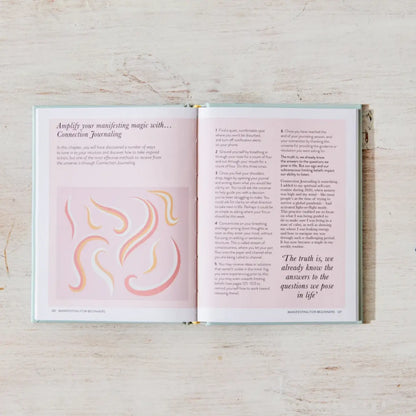 Amplify your manifesting magic with...
Connection Journaling
In this chapter, you will have discovered a number of ways
to tune in to your intuition and discover how to take inspired
action, but one of the most effective methods to receive from
the universe is through Connection Journaling.
MANIFESTING FOR BEGINNERS
1 Find a quiet, comfortable spot
where you won't be disturbed
and turn off notifications
on your phone.
2 Ground yourself by breathing in
through your nose for a count of five
and out through your mouth for a
count of five. Do this three times.
3 Once you feel your shoulders
drop, begin by opening your journal
and writing down what you would like
clarity on. You could ask the universe
to help guide you with a decision
you've been struggling to make. You
could ask for clarity on what direction
to take next in life. Perhaps it could be
as simple as asking where your focus
should be this week.
4 Concentrate on your breathing
and begin writing down thoughts as
soon as they enter your mind, without
focusing on editing or sentence
structure. This is called stream of
consciousness, where you let your pen
flow over the page and channel what
you are being called to channel.
5 You may receive ideas or solutions
that weren't evident in the mind.
6 Once you have reached the
end of your journaling session, end
your connection by thanking the
universe for providing the guidance or
resolution you were asking for.
The truth is, we already know
the answers to the questions we
pose in life. But our ego and our
subconscious limiting beliefs impact
our ability to listen.
Connection Journaling is something
I added to my spiritual self-care
routine during 2020, when anxiety
was high and my mind – like most
people's at the time of trying to
survive a global pandemic – had
activated fight-or-flight mode.
This practice enabled me to focus
on what I was being guided to
do to make sure I was living in a
state of calm, as well as showing
me where I was leaking energy
and how to navigate my way
through such a challenging period.
It has now become a staple in my
weekly routine.
'The truth is, we
already know the
answers to the
questions we pose
in life'
MANIFESTING FOR BEGINNERS